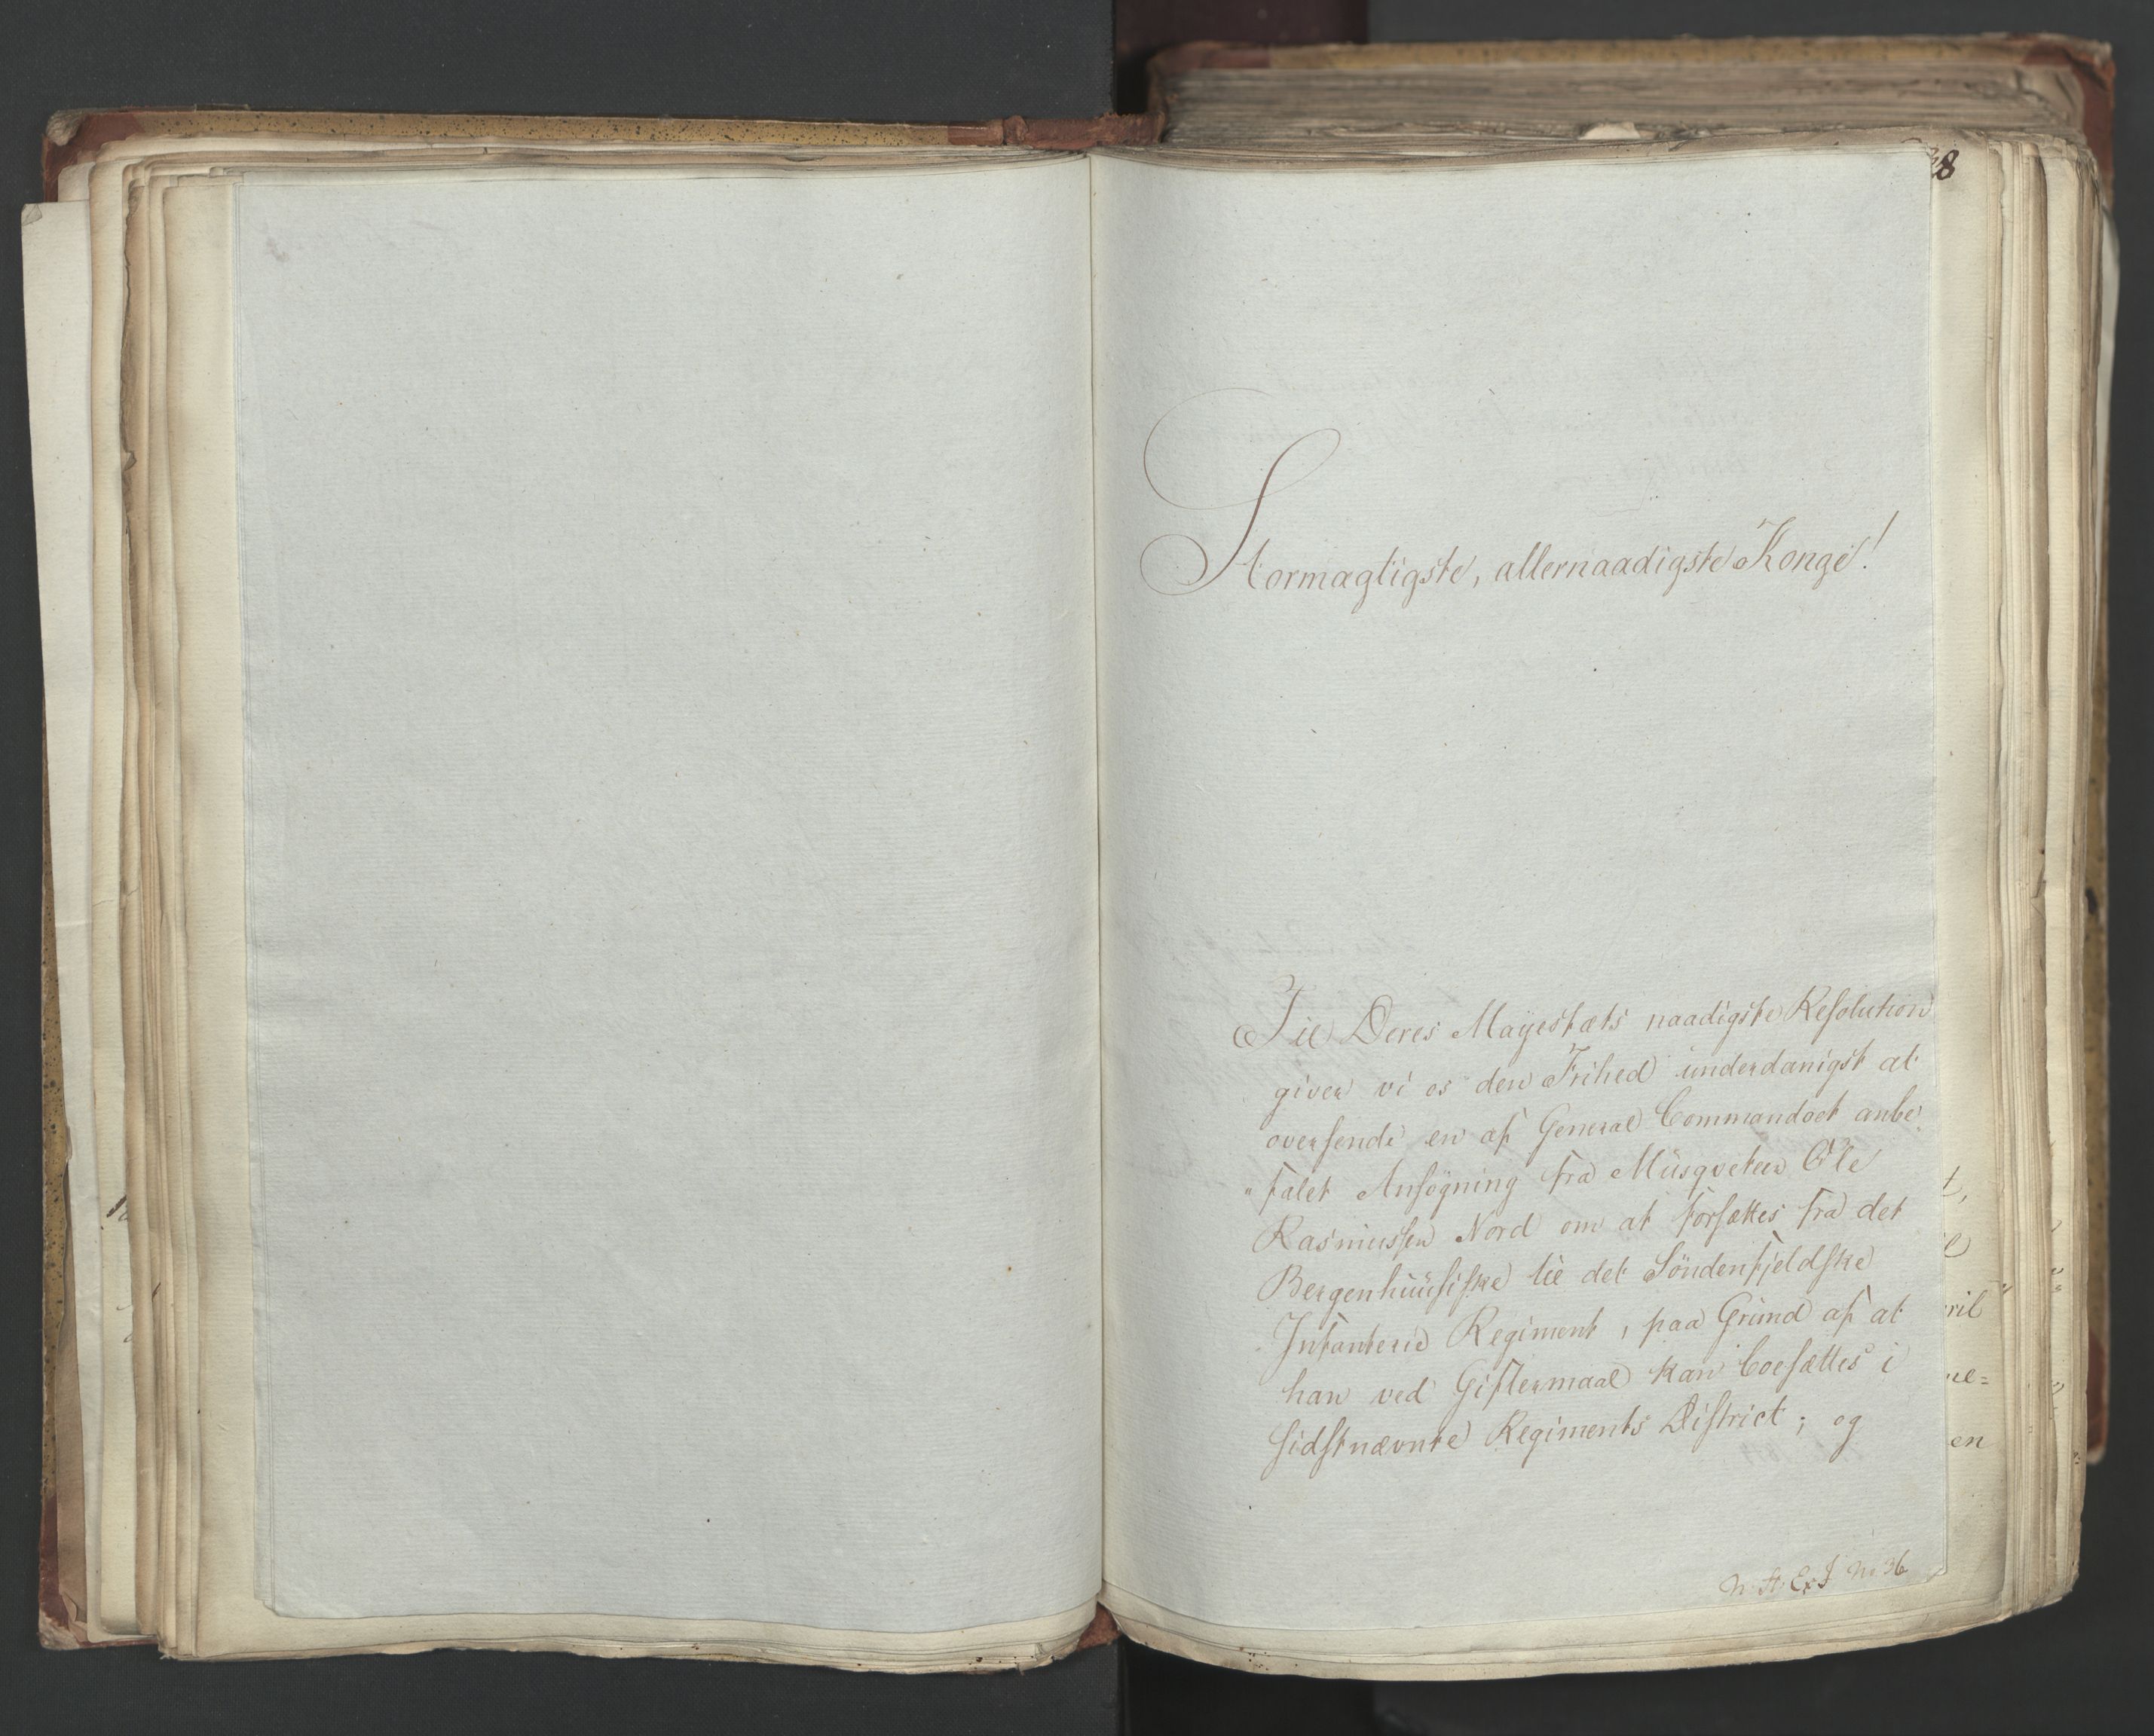 8
Stormægtigste, allernaadigste Konge!
Til Deres Mayestæts naadigste Resolution
giver vi os den Frihed underdanigst at
oversende en af General Commandoet anbe
"falet Ansögning fra Musqveteer Ole
Rasmussen Nord om at forsættes fra det
Bergenhuusiske til det Söndenfjeldske
Infanterie Regiment, paa Grund af at
han ved Giftermaal kan boesættes i
sidstnævnte Regiments District; og
N. St. Ex. J No 36
t,
ril
ne=
en